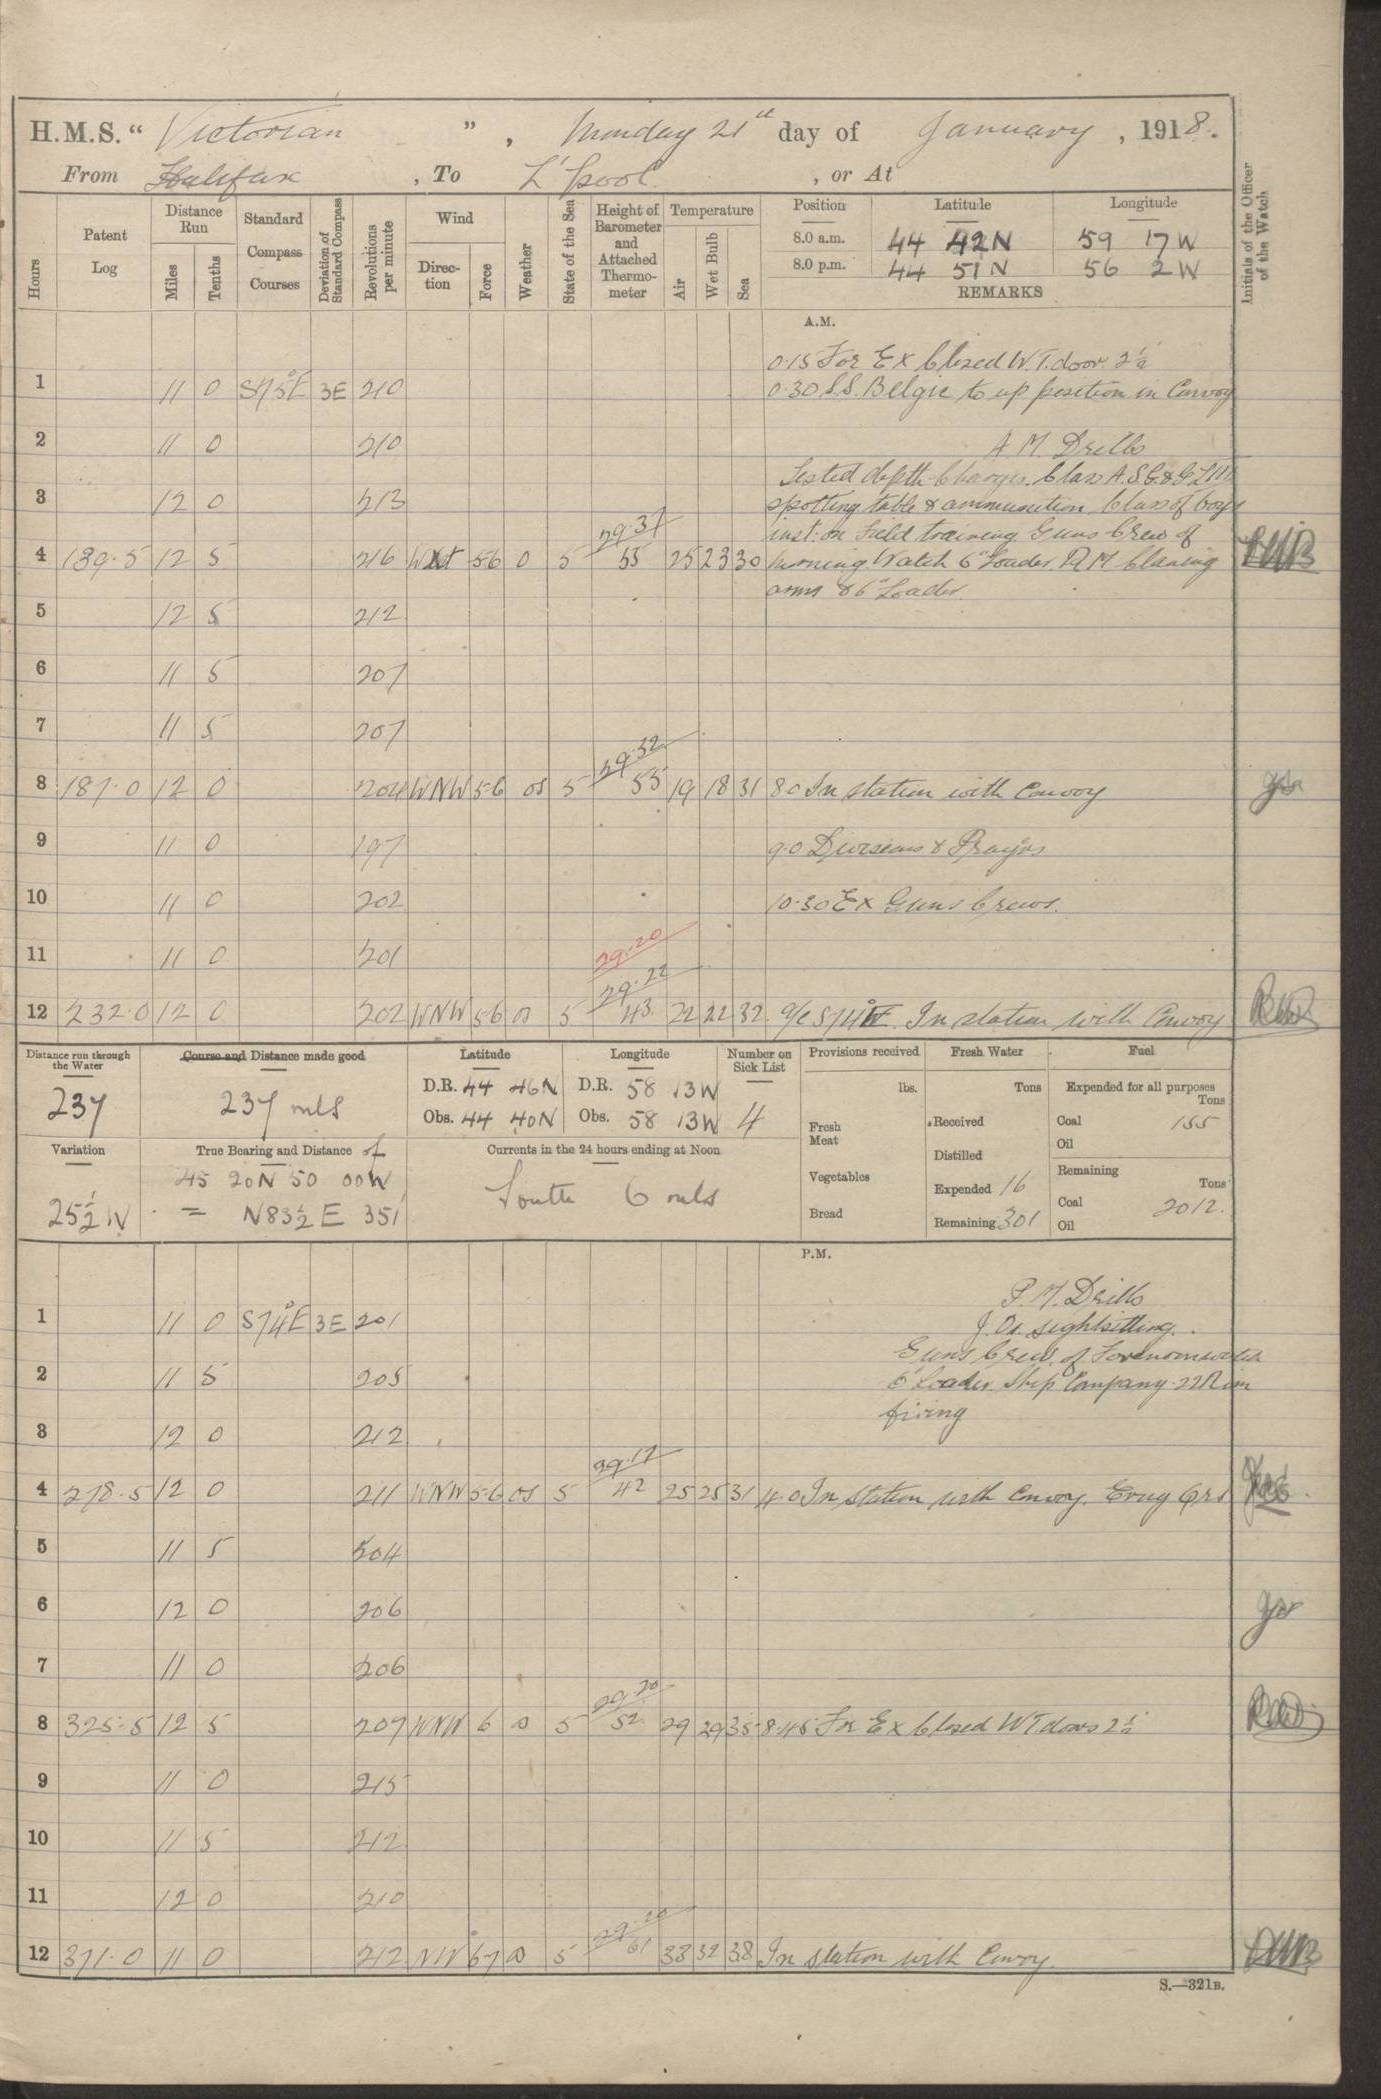 H.M.S. " Victorian ", Monday 21st day of January, 1918.
From Halifax, To L'pool, or At
Hours Patent Log Distance Run Miles Tenths Standard Compass Courses Deviation of Standard Compass Revolutions per minute Wind Direction Force Weather State of the Sea Height of Barometer and Attached Thermometer Temperature Air Wet Bulb Sea Position Latitude Longitude Initials of the Officer of the Watch
8.0 a.m. 44 42N 59 17W
8.0 p.m. 44 51N 56 2W
REMARKS
A.M.
0.15 For Ex Closed W.T. door 2½
1 11 0 S75°E 3E 210 0.30 S.S. Belgic to up position in Convoy
2 11 0 210 A.M. Drills
Tested depth Charges. Class A.S.G. &
3 12 0 213 spotting table & ammunition Class of boys
inst: on Field training Guns Crew of
4 139.5 12 5 216 56 0 5 29.37 55 25 23 30 morning Watch 6" Loader. P.M. Cleaning
arms & 6" Loader
5 12 5 212
6 11 5 207
7 11 5 207
8 187.0 12 0 204 WNW 5-6 os 5 29.32 55 19 18 31 8.0 In station with Convoy
9 11 0 197 9.0 Divisions & Prayers
10 11 0 202 10.30 Ex Guns Crews.
11 11 0 201 29.20
12 232.0 12 0 202 WNW 5-6 os 5 29.22 43 22 22 32 In station with Convoy
Distance run through the Water Course and Distance made good Latitude Longitude Number on Sick List Provisions received Fresh Water Fuel
237 237 mls D.R. 44 46N D.R. 58 13W lbs. Tons Expended for all purposes Tons
Obs. 44 40N Obs. 58 13W 4 Fresh Meat Received Coal 155
Oil
Variation True Bearing and Distance of Currents in the 24 hours ending at Noon Distilled Remaining Tons
45 20N 50 00W Vegetables Expended 16
25½ W = N83½E 351 South 6 mls Bread Remaining 301 Coal 2012.
Oil
P.M.
P.M. Drills
1 11 0 S74°E 3E 201 sightsetting.
Guns Crew of Forenoon watch
2 11 5 205 6" Loader. Ship Company .22 Rim
firing
3 12 0 212
4 278.5 12 0 211 WNW 5-6 os 5 29.17 42 25 25 31 4.0 In station with Convoy. Evng Qrs
5 11 5 204
6 12 0 206
7 11 0 206
8 325.5 12 5 207 WNW 6 o 5 29.20 52 29 29 35 8.45 For Ex Closed WT doors 2½
9 11 0 215
10 11 5 212
11 12 0 210
12 371.0 11 0 212 NW 6-7 o 5 29.20 61 33 32 38 In station with Convoy.
S.—321B.